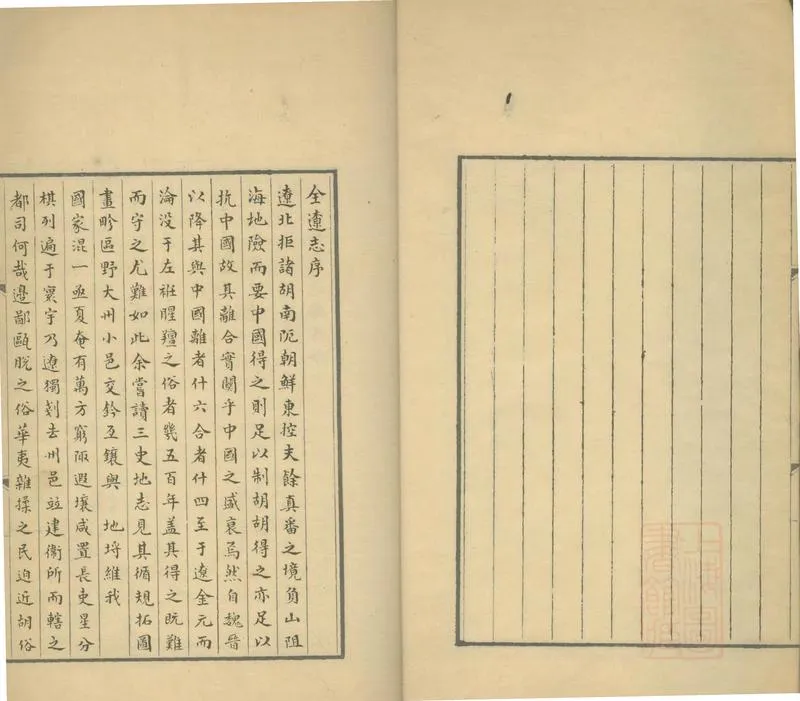 全遼志序
遼北拒諸胡南阨朝鮮東控夫餘真番之境負山阻
海地險而要中國得之則足以制胡胡得之亦足以
抗中國故其離合實關乎中國之盛衰焉然自魏晉
以降其與中國離者什六合者什四至于遼金元而
淪没于左袵腥羶之俗者幾五百年盖其得之既難
而守之尤難如此余嘗讀三史地志見其循規拓圖
畫畛區野大州小邑交鈐互鑲與 地埒維我
國家混一亟夏奄有萬方窮陬遐壤咸置長吏星分
棋列遍于寰宇乃遼獨剗去州邑竝建衛所而轄之
都司何哉邊鄙甌脱之俗華夷雜揉之民迫近胡俗